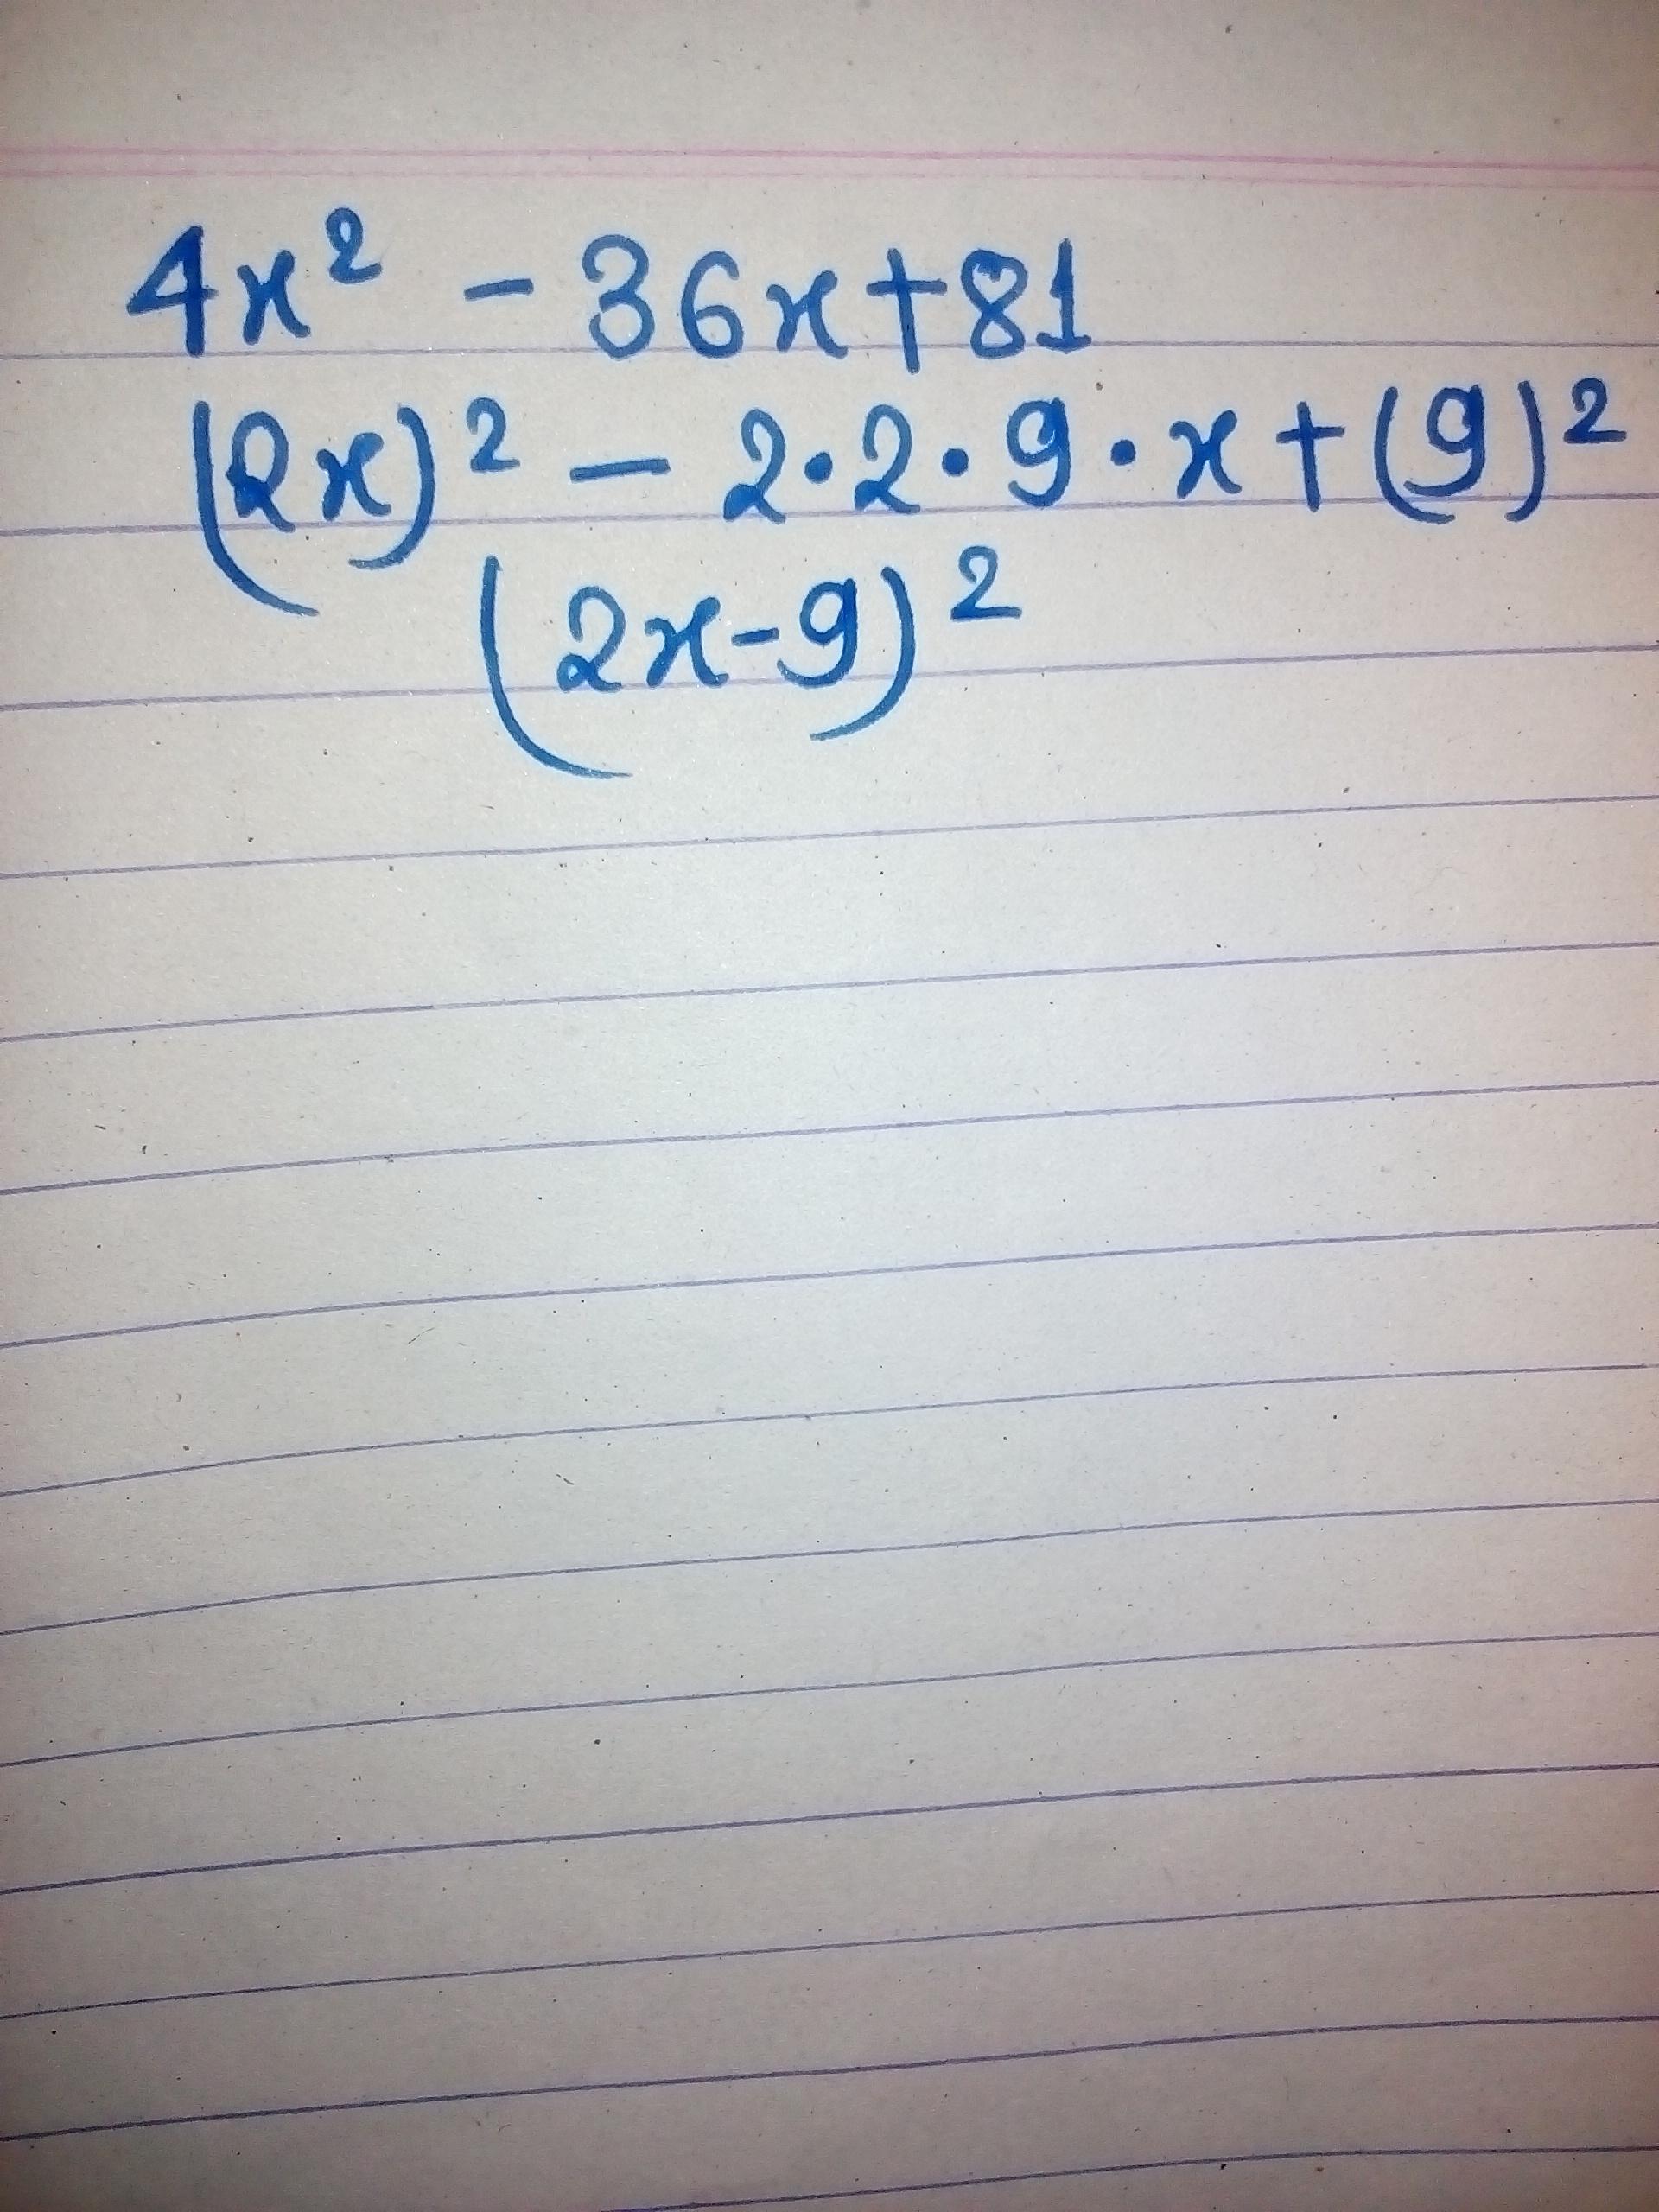 4x² - 36x + 81
(2x)² - 2·2·9·x + (9)²
(2x-9)²